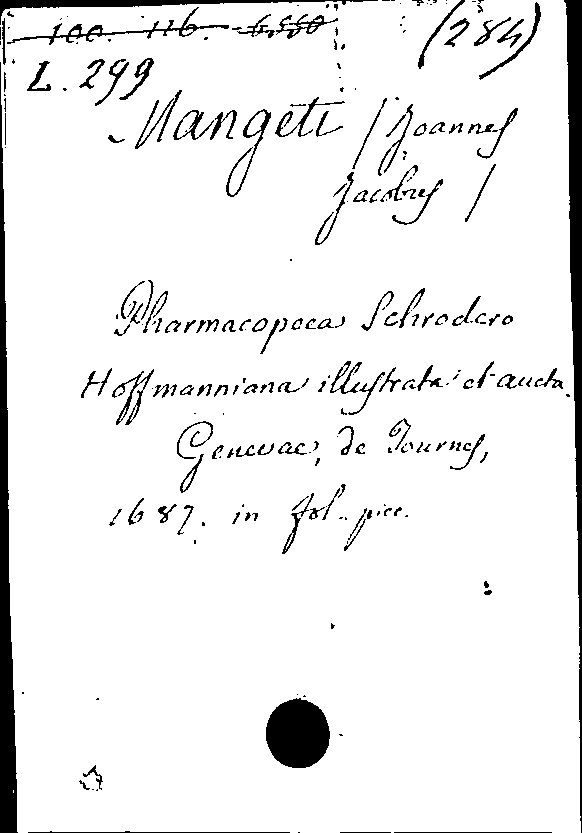 100. 116. 6,550 (284)
L. 299
Mangeti / Joannes
Jacobus /
Pharmacopoea Schrodero
Hoffmanniana illustrata et aucta.
Genevae, de Tournes,
1687. in fol. picc.